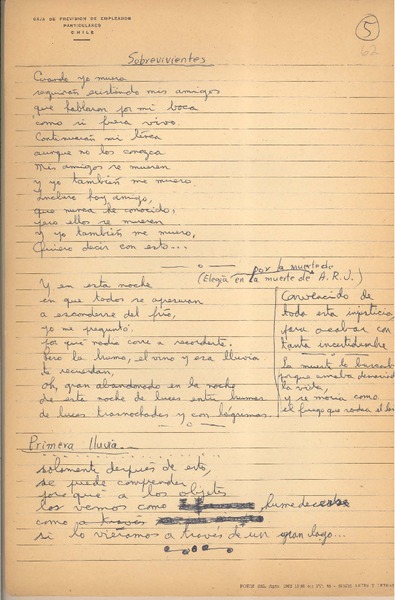 CAJA DE PREVISION DE EMPLEADOS
PARTICULARES
CHILE
5
62
Sobrevivientes
Cuando yo muera
seguirán existiendo mis amigos
que hablaron por mi boca
como si fuera vivo.
Continuarán mi línea
aunque no los conozca
Mis amigos se mueren
y yo también me muero
Incluso hay amigos,
que nunca he conocido,
pero ellos se mueren
Y yo también me muero,
Quiero decir con esto...
por la muerte de
(Elegía en la muerte de A.R.J.)
Y en esta noche
en que todos se apresuran
a esconderse del frío,
yo me pregunto
por qué nadie corre a recordarte.
Pero la humo, el vino y esa lluvia
te recuerdan,
Oh, gran abandonado en la noche
de esta noche de luces entre humos
de luces trasnochadas y con lágrimas.
Convencido de
toda esta injusticia
para acabar con
tanta incertidumbre
La muerte lo buscaba
porque amaba demasiado
la vida,
y se moría como
el fuego que rodea el
Primera lluvia
solamente después de esto,
se puede comprender
por qué a los objetos
los vemos como humedecerse
como a través
si lo viéramos a través de un gran lago...